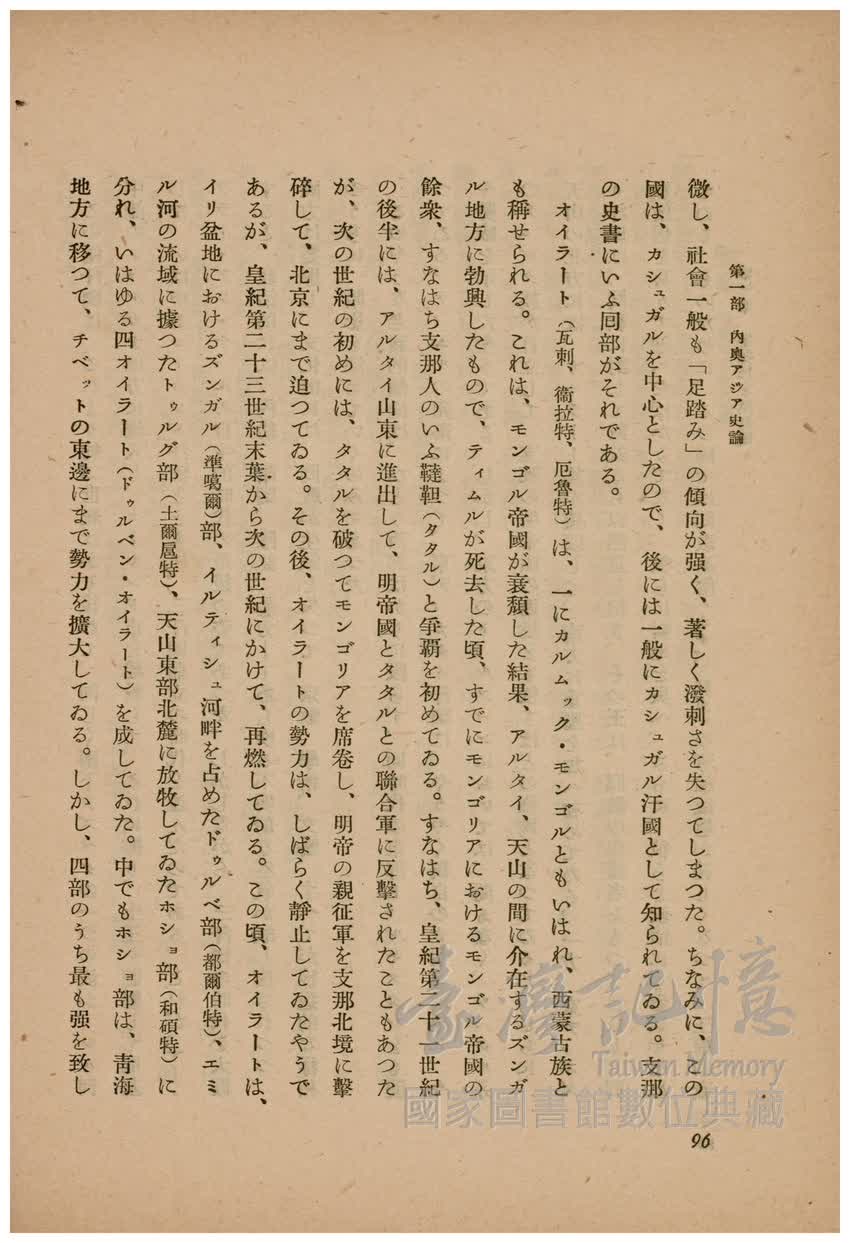 第一部 內奧アジア史論
微し、社會一般も「足踏み」の傾向が强く、著しく潑剌さを失つてしまつた。ちなみに、この
國は、カシュガルを中心としたので、後には一般にカシュガル汗國として知られてゐる。支那
の史書にいふ回部がそれである。
オイラート（瓦剌、衞拉特、厄魯特）は、一にカルムック・モンゴルともいはれ、西蒙古族と
も稱せられる。これは、モンゴル帝國が衰頽した結果、アルタイ、天山の間に介在するズンガ
ル地方に勃興したもので、ティムルが死去した頃、すでにモンゴリアにおけるモンゴル帝國の
餘衆、すなはち支那人のいふ韃靼（タタル）と爭覇を初めてゐる。すなはち、皇紀第二十一世紀
の後半には、アルタイ山東に進出して、明帝國とタタルとの聯合軍に反擊されたこともあつた
が、次の世紀の初めには、タタルを破つてモンゴリアを席卷し、明帝の親征軍を支那北境に擊
碎して、北京にまで迫つてゐる。その後、オイラートの勢力は、しばらく靜止してゐたやうで
あるが、皇紀第二十三世紀末葉から次の世紀にかけて、再燃してゐる。この頃、オイラートは、
イリ盆地におけるズンガル（準噶爾）部、イルティシュ河畔を占めたドゥルベ部（都爾伯特）、エミ
ル河の流域に據つたトゥルグ部（土爾扈特）、天山東部北麓に放牧してゐたホショ部（和碩特）に
分れ、いはゆる四オイラート（ドゥルベン・オイラート）を成してゐた。中でもホショ部は、靑海
地方に移つて、チベットの東邊にまで勢力を擴大してゐる。しかし、四部のうち最も强を致し
臺灣記憶
Taiwan Memory
國家圖書館數位典藏
96